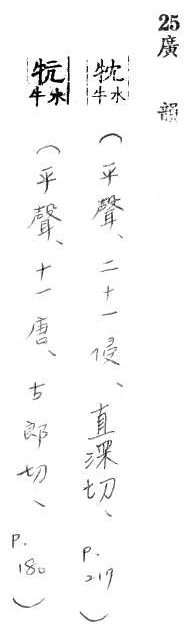 25 廣韻
水牛(平聲、二十一侵、直深切、P.217)
牨 水牛(平聲、十一唐、古郎切、P.180)